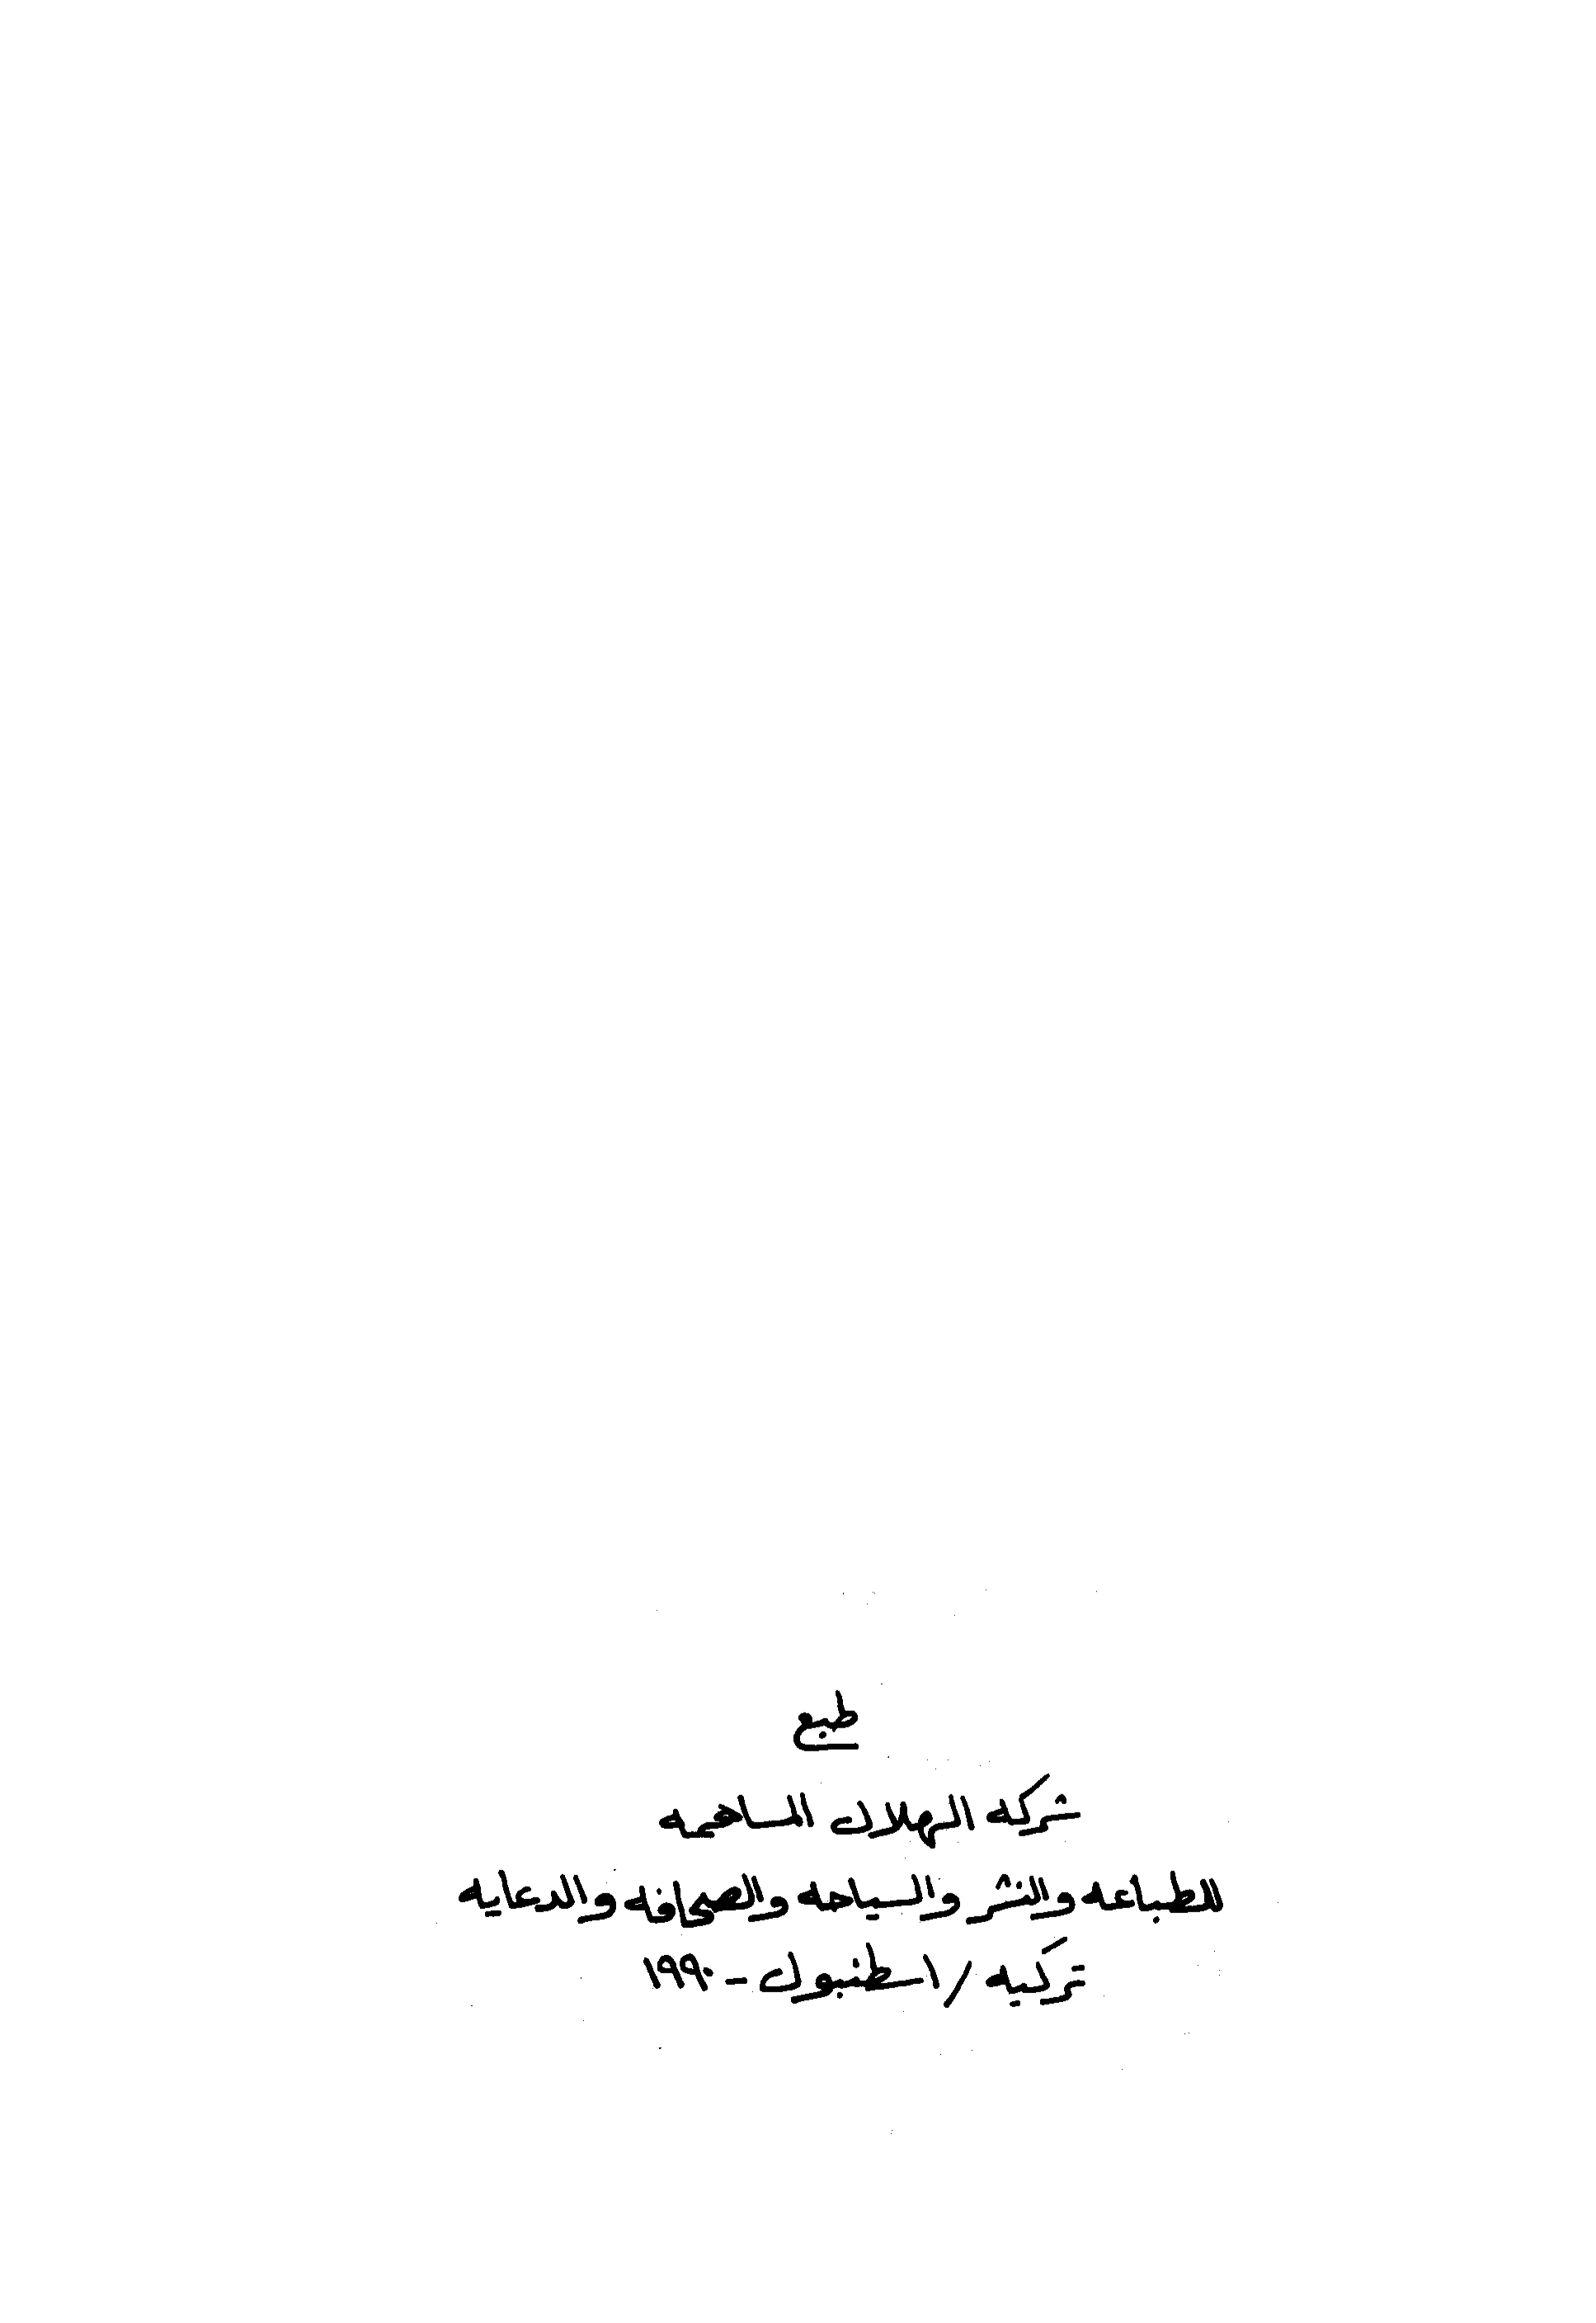 طبع
شركه الهلال المساهمه
للطباعه والنشر والسياحه والصحافه والدعايه
تركيه / اسطنبول - ١٩٩٠